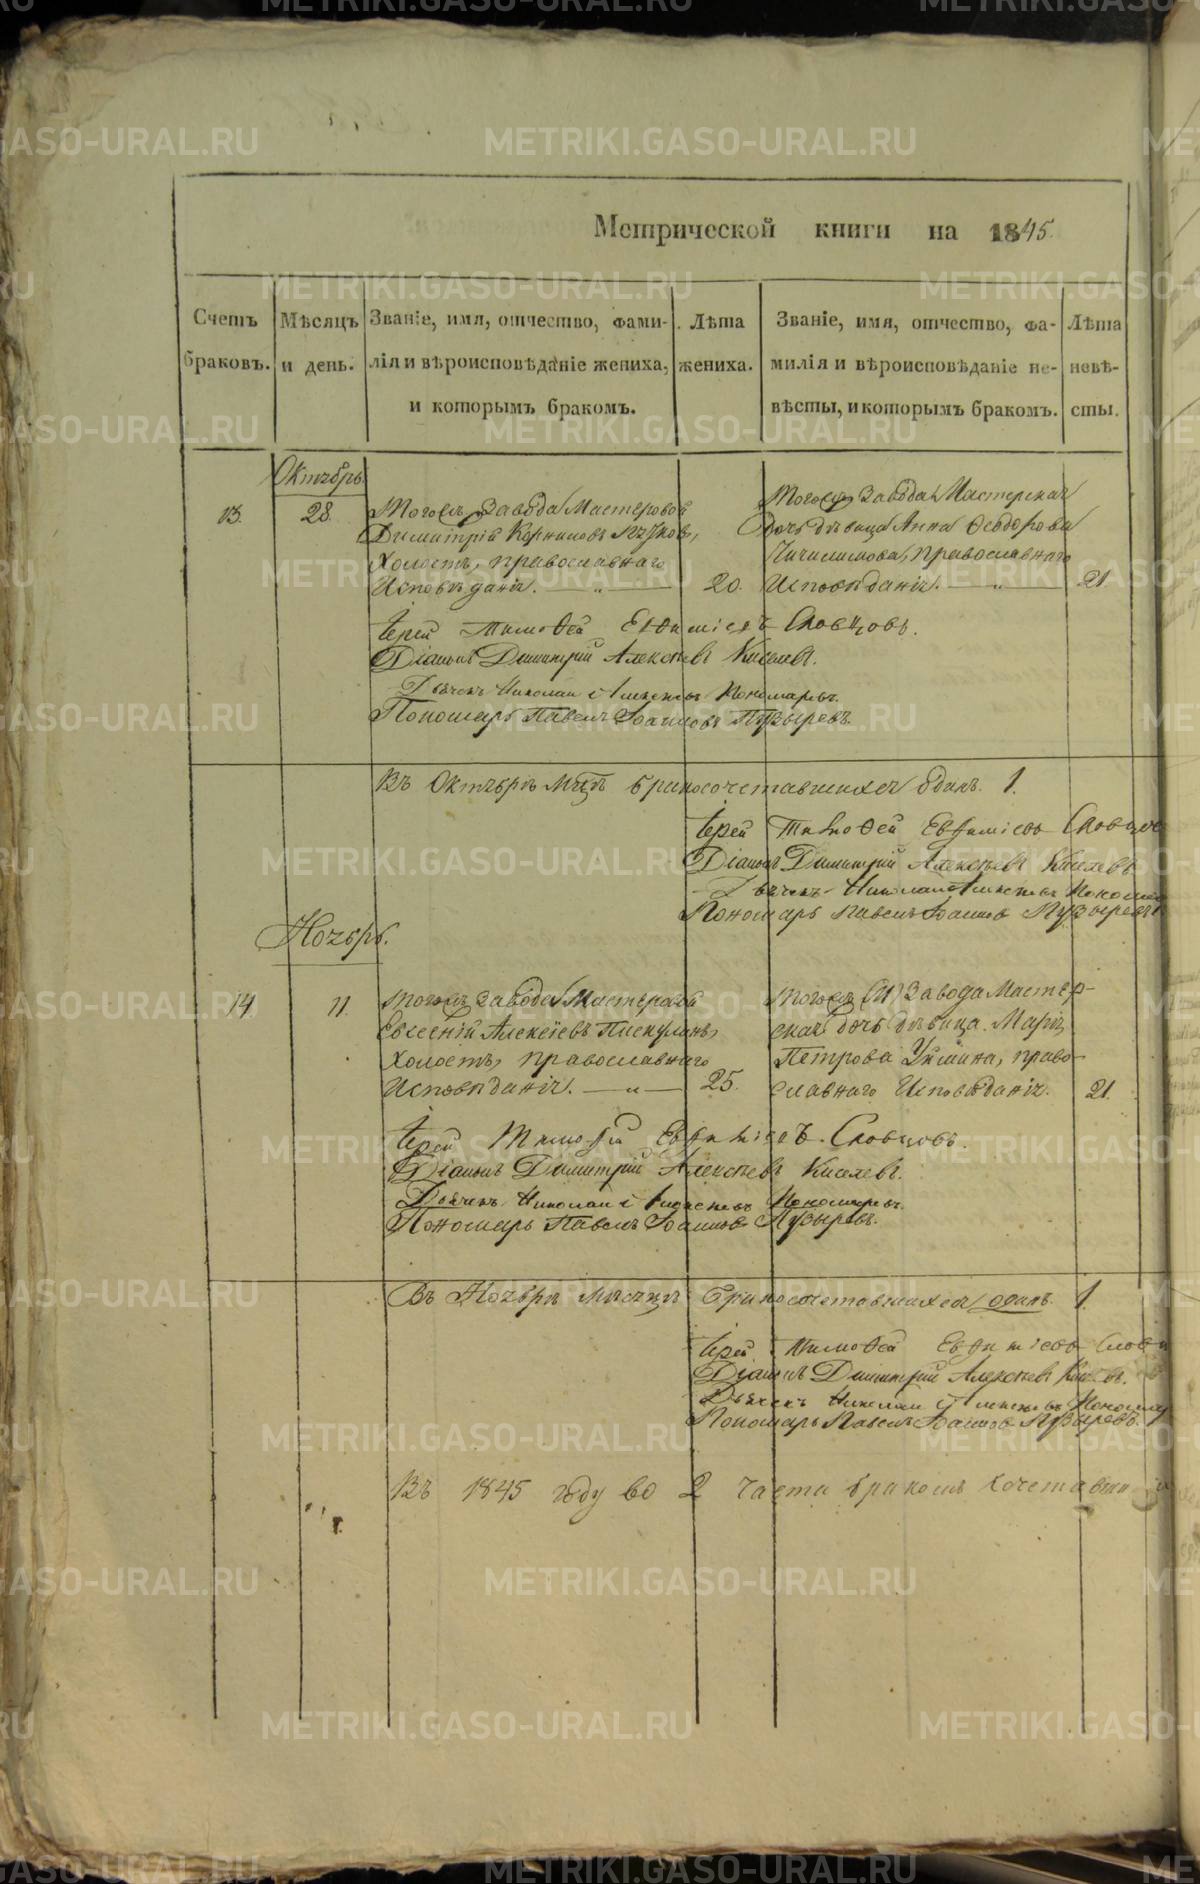 METRIKI.GASO-URAL.RU
Метрической книги на 1845.
Счетъ браковъ.
Мѣсяцъ и день.
Званіе, имя, отчество, фами-
лія и вѣроисповѣданіе жениха,
и которымъ бракомъ.
Лѣта жениха.
Званіе, имя, отчество, фа-
милія и вѣроисповѣданіе не-
вѣсты, и которымъ бракомъ.
Лѣта невѣ-
сты.
Октябрь
13.
28.
Завода Мастеровой
Димитрій Корниловъ
Холостъ, православнаго
Исповѣданія.
20.
Завода Мастерская
Дочь дѣвица Анна Ѳеодорова
православнаго
Исповѣданія.
21.
Іерей Тимоѳей Евѳиміевъ Словцовъ.
Діаконъ Димитрій Алексѣевъ Киселевъ.
Дьячекъ Николай Алексѣевъ Пономаревъ.
Пономарь Павелъ Іоанновъ Пузыревъ.
Въ Октябрѣ м̃цѣ бракосочетавшихся одинъ. 1.
Іерей Тимоѳей Евѳиміевъ
Діаконъ Димитрій Алексѣевъ Киселевъ
Дьячекъ Николай Алексѣевъ
Пономарь Павелъ Іоанновъ Пузыревъ
Ноябрь.
14.
11.
Завода Мастеровой
Евгеній Алексѣевъ Пискулинъ,
холостъ, православнаго
Исповѣданія.
25.
Завода Мастер-
ская дочь дѣвица Марія
Петрова Уймина, право-
славнаго Исповѣданія.
21.
Іерей Тимоѳей Евѳиміевъ Словцовъ.
Діаконъ Димитрій Алексѣевъ Киселевъ.
Дьячекъ Николай Алексѣевъ Пономаревъ.
Пономарь Павелъ Іоанновъ Пузыревъ.
Въ Ноябрѣ мѣсяцѣ бракосочетавшихся одинъ. 1.
Іерей Тимоѳей Евѳиміевъ
Діаконъ Димитрій Алексѣевъ
Дьячекъ Николай Алексѣевъ
Пономарь Павелъ Іоанновъ Пузыревъ.
Въ 1845 году во 2 части бракомъ